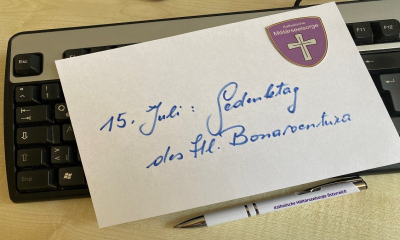 Katholische
Militärseelsorge
15. Juli: Gedenktag
des Hl. Bonaventura
Katholische Militärseelsorge Österreich
Esc
F11
F12